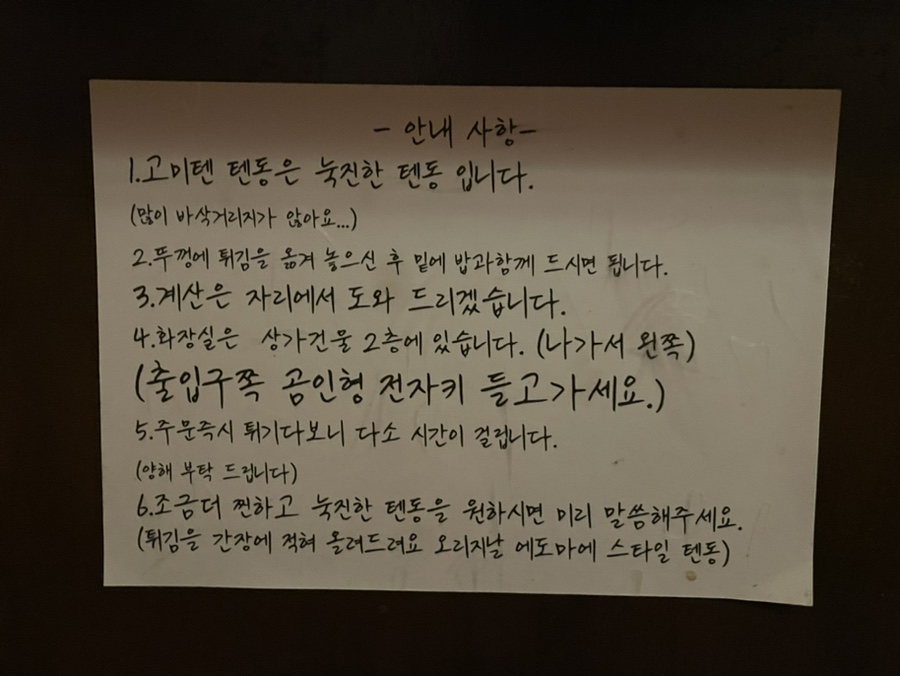 - 안내 사항-
1.고미텐 텐동은 눅진한 텐동 입니다.
(많이 바삭거리지가 않아요...)
2.뚜껑에 튀김을 옮겨 놓으신 후 밑에 밥과함께 드시면 됩니다.
3.계산은 자리에서 도와 드리겠습니다.
4.화장실은 상가건물 2층에 있습니다. (나가서 왼쪽)
(출입구쪽 곰인형 전자키 들고가세요.)
5.주문즉시 튀기다보니 다소 시간이 걸립니다.
(양해 부탁 드립니다)
6.조금더 찐하고 눅진한 텐동을 원하시면 미리 말씀해주세요.
(튀김을 간장에 적혀 올려드려요 오리지날 에도마에 스타일 텐동)